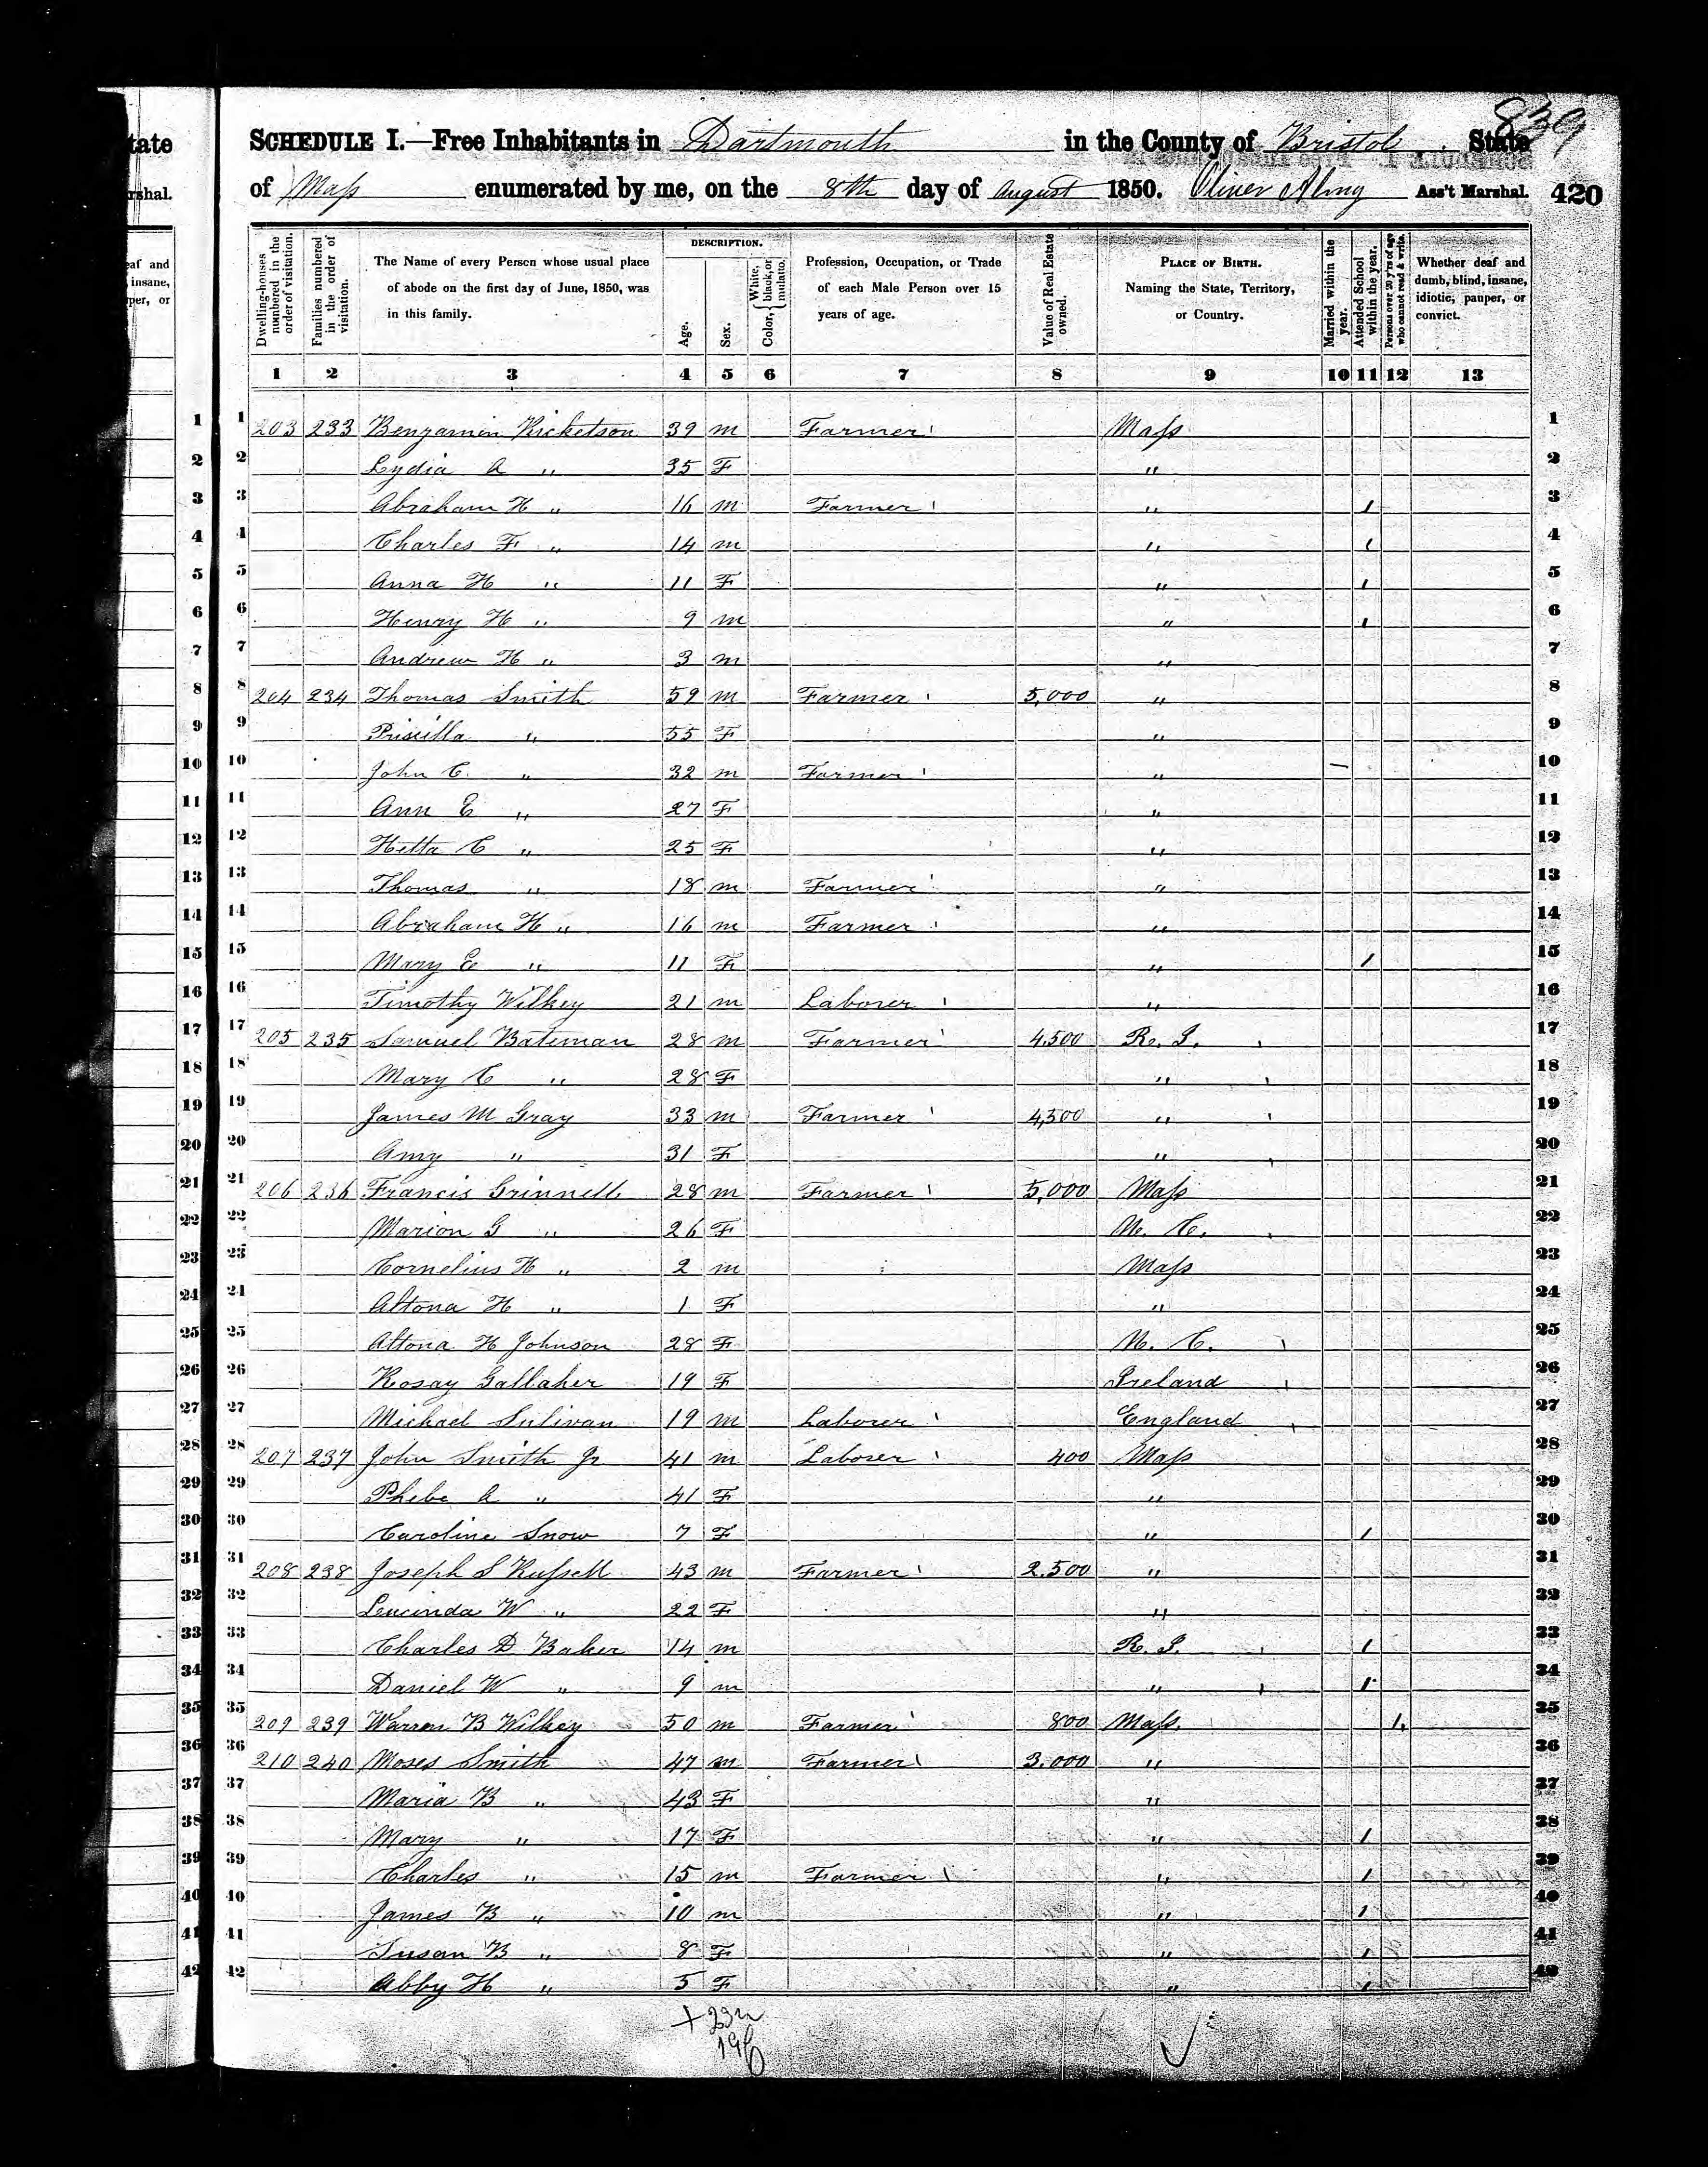 839
SCHEDULE I.—Free Inhabitants in Dartmouth in the County of Bristol State
of Mass enumerated by me, on the 8th day of August 1850. Oliver Almy Ass't Marshal. 420
Dwelling-houses numbered in the order of visitation. Families numbered in the order of visitation. The Name of every Person whose usual place of abode on the first day of June, 1850, was in this family. DESCRIPTION. Age. Sex. Color, { White, black, or mulatto. Profession, Occupation, or Trade of each Male Person over 15 years of age. Value of Real Estate owned. PLACE OF BIRTH. Naming the State, Territory, or Country. Married within the year. Attended School within the year. Persons over 20 y'rs of age who cannot read & write. Whether deaf and dumb, blind, insane, idiotic, pauper, or convict.
1 2 3 4 5 6 7 8 9 10 11 12 13
1 203 233 Benjamin Ricketson 39 m Farmer Mass 1
2 Lydia A " 35 F " 2
3 Abraham H " 16 m Farmer " 1 3
4 Charles F " 14 m " 1 4
5 Anna H " 11 F " 1 5
6 Henry H " 9 m " 1 6
7 Andrew H " 3 m " 7
8 204 234 Thomas Smith 59 m Farmer 5,000 " 8
9 Priscilla " 55 F " 9
10 John C. " 32 m Farmer " — 10
11 Ann E " 27 F " 11
12 Hetta C " 25 F " 12
13 Thomas " 18 m Farmer " 13
14 Abraham H " 16 m Farmer " 14
15 Mary E " 11 F " 1 15
16 Timothy Wilkey 21 m Laborer " 16
17 205 235 Samuel Bateman 28 m Farmer 4.500 R. I. 17
18 Mary C " 28 F " 18
19 James M Gray 33 m Farmer 4,500 " 19
20 Amy " 31 F " 20
21 206 236 Francis Grinnell 28 m Farmer 5,000 Mass 21
22 Marion G " 26 F N. C. 22
23 Cornelius H " 2 m Mass 23
24 Altona H " 1 F " 24
25 Altona H Johnson 28 F N. C. 25
26 Rosay Gallaher 19 F Ireland 26
27 Michael Sulivan 19 m Laborer England 27
28 207 237 John Smith Jr 41 m Laborer 400 Mass 28
29 Phebe A " 41 F " 29
30 Caroline Snow 7 F " 1 30
31 208 238 Joseph S Russell 43 m Farmer 2.500 " 31
32 Lucinda W " 22 F " 32
33 Charles D Baker 14 m R. I. 1 33
34 Daniel W " 9 m " 1 34
35 209 239 Warren B Wilkey 50 m Farmer 800 Mass. 1 35
36 210 240 Moses Smith 47 m Farmer 3.000 " 36
37 Maria B " 43 F " 37
38 Mary " 17 F " 1 38
39 Charles " 15 m Farmer " 1 39
40 James B " 10 m " 1 40
41 Susan B " 8 F " 1 41
42 Abby H " 5 F " 1 42